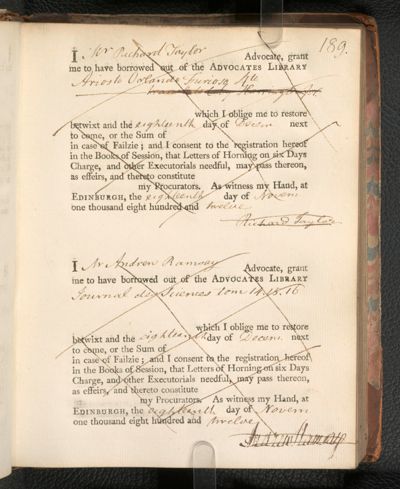 189.
I, Mr Richard Taylor Advocate, grant
me to have borrowed out of the ADVOCATES LIBRARY
Ariosto Orlando furioso 4to
which I oblige me to restore
betwixt and the eighteenth day of Decem next
to come, or the Sum of
in case of Failzie; and I consent to the registration hereof
in the Books of Session, that Letters of Horning on six Days
Charge, and other Executorials needful, may pass thereon,
as effeirs, and thereto constitute
my Procurators. As witness my Hand, at
EDINBURGH, the eighteenth day of Novem
one thousand eight hundred and twelve
Richard Taylor
I Mr Andrew Ramsay Advocate, grant
me to have borrowed out of the ADVOCATES LIBRARY
Journal des Sciences tom 14.15.16
which I oblige me to restore
betwixt and the eighteenth day of Decem next
to come, or the Sum of
in case of Failzie; and I consent to the registration hereof
in the Books of Session, that Letters of Horning on six Days
Charge, and other Executorials needful, may pass thereon,
as effeirs, and thereto constitute
my Procurators. As witness my Hand, at
EDINBURGH, the eighteenth day of Novem
one thousand eight hundred and twelve
Andrew Ramsay